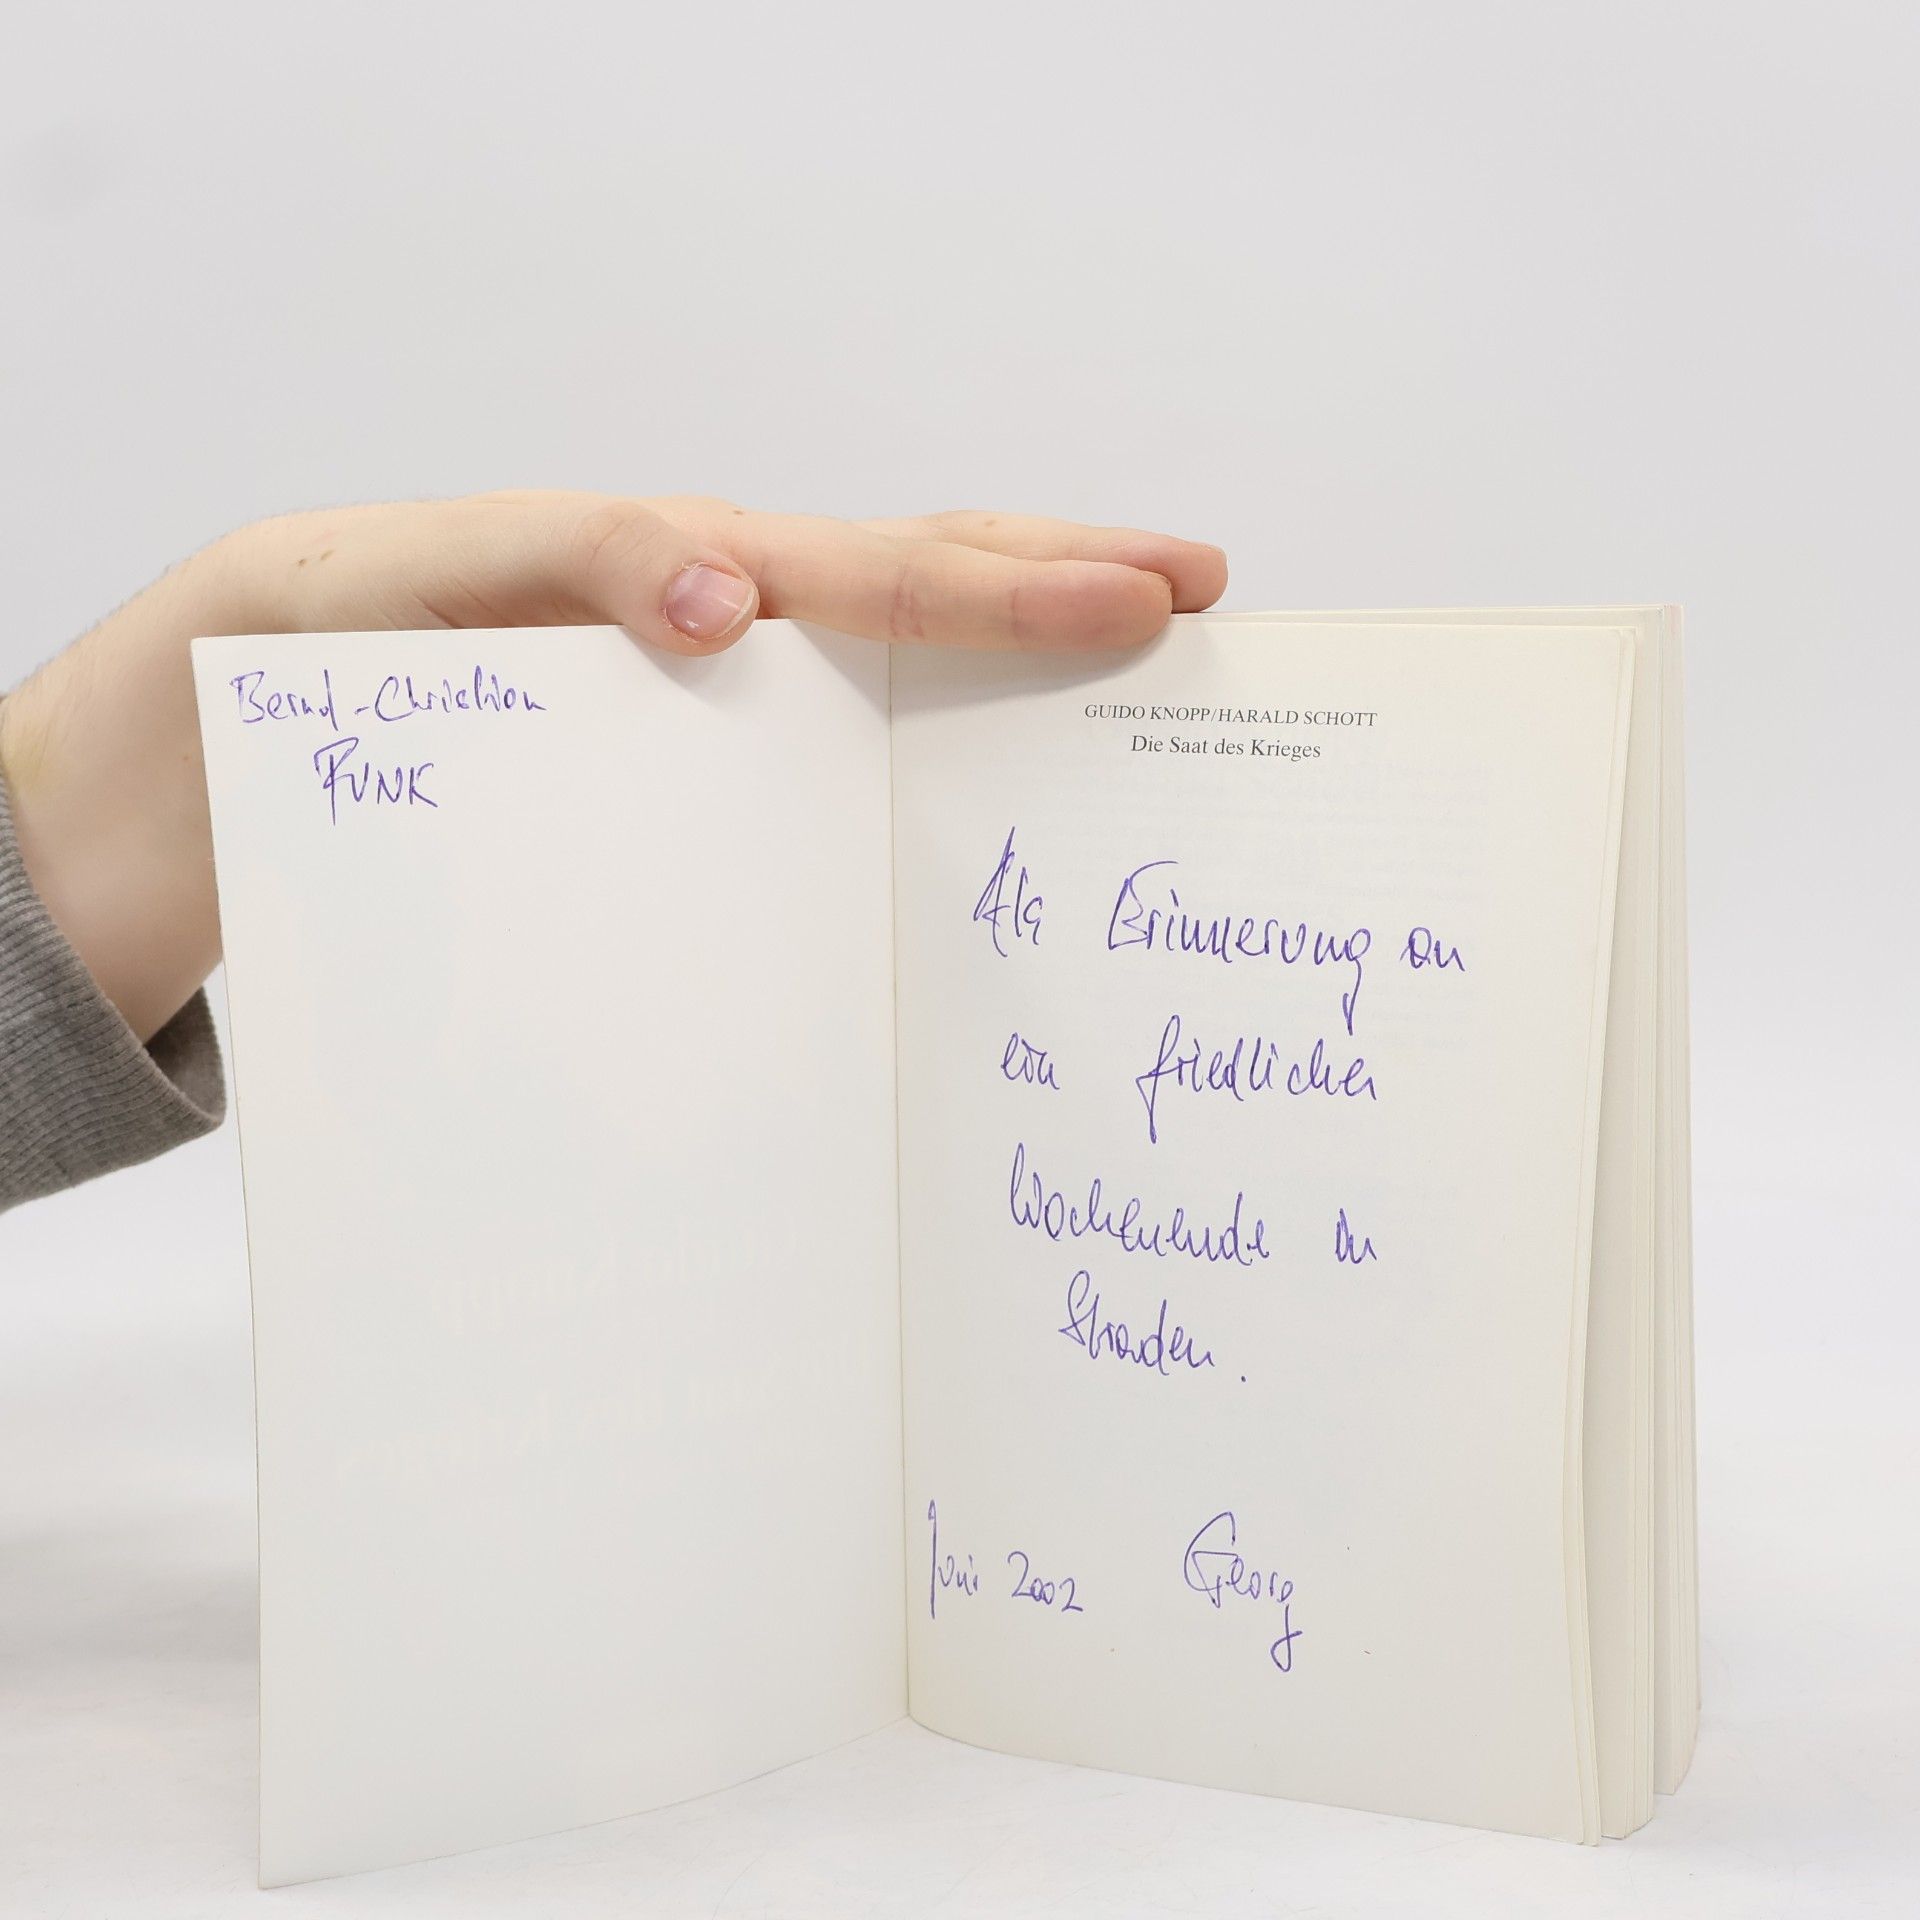 Bernd-Christian
FUNK
GUIDO KNOPP/HARALD SCHOTT
Die Saat des Krieges
Als Erinnerung an
ein friedliches
Wochenende in
Straden.
Juni 2002 Georg